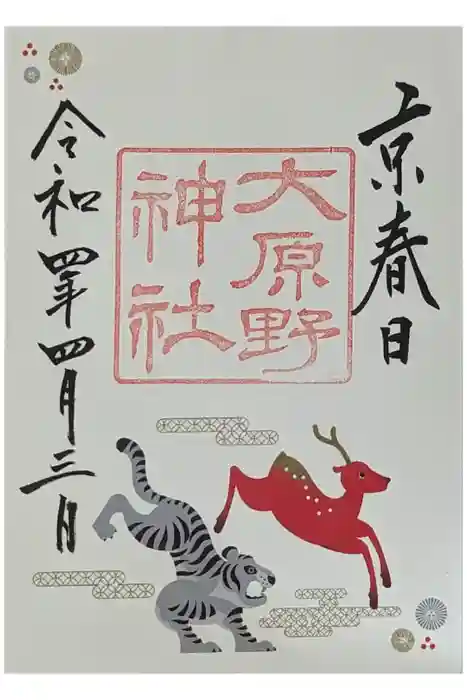 京春日
大原野
神社
令和四年四月三日